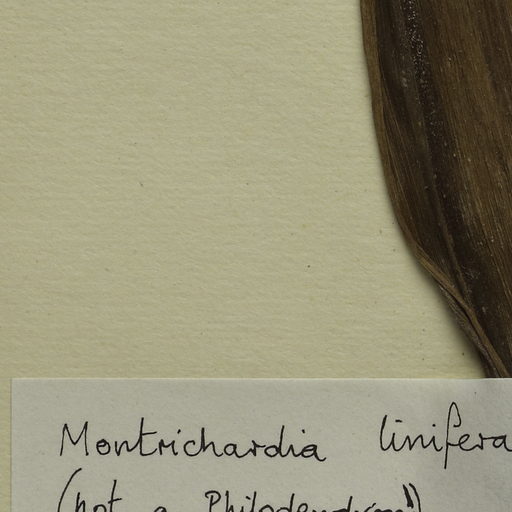 Montrichardia linifera
(not a Philodendron!)